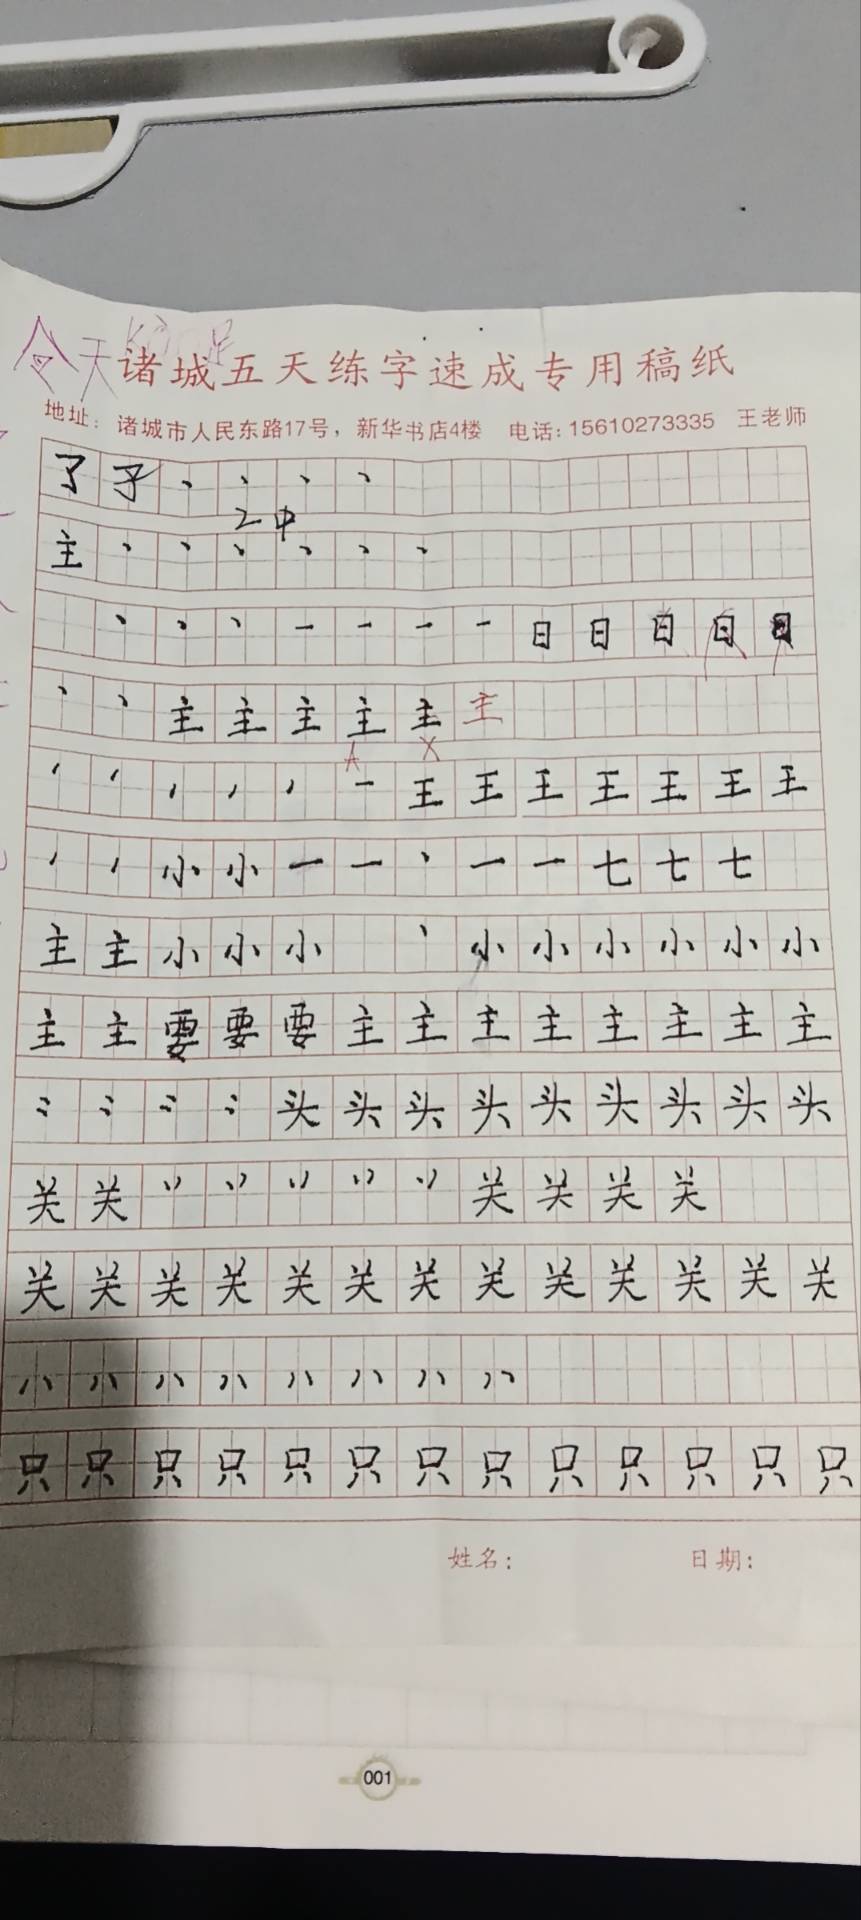 今天
诸城五天练字速成专用稿纸
地址：诸城市人民东路17号，新华书店4楼 电话：15610273335 王老师
了子丶丶丶丶
2中
主丶丶丶丶丶丶
丶丶丶一一一一日日日日日
丶丶主主主主主主
A X
一王王王王王王王
小小一一丶一一七七七
主主小小小丶小小小小小小
主主要要要主主主主主主主主
头头头头头头头头头
关关关关关关
关关关关关关关关关关关关关
八八八八八八八八
只只只只只只只只只只只只只
姓名： 日期：
001